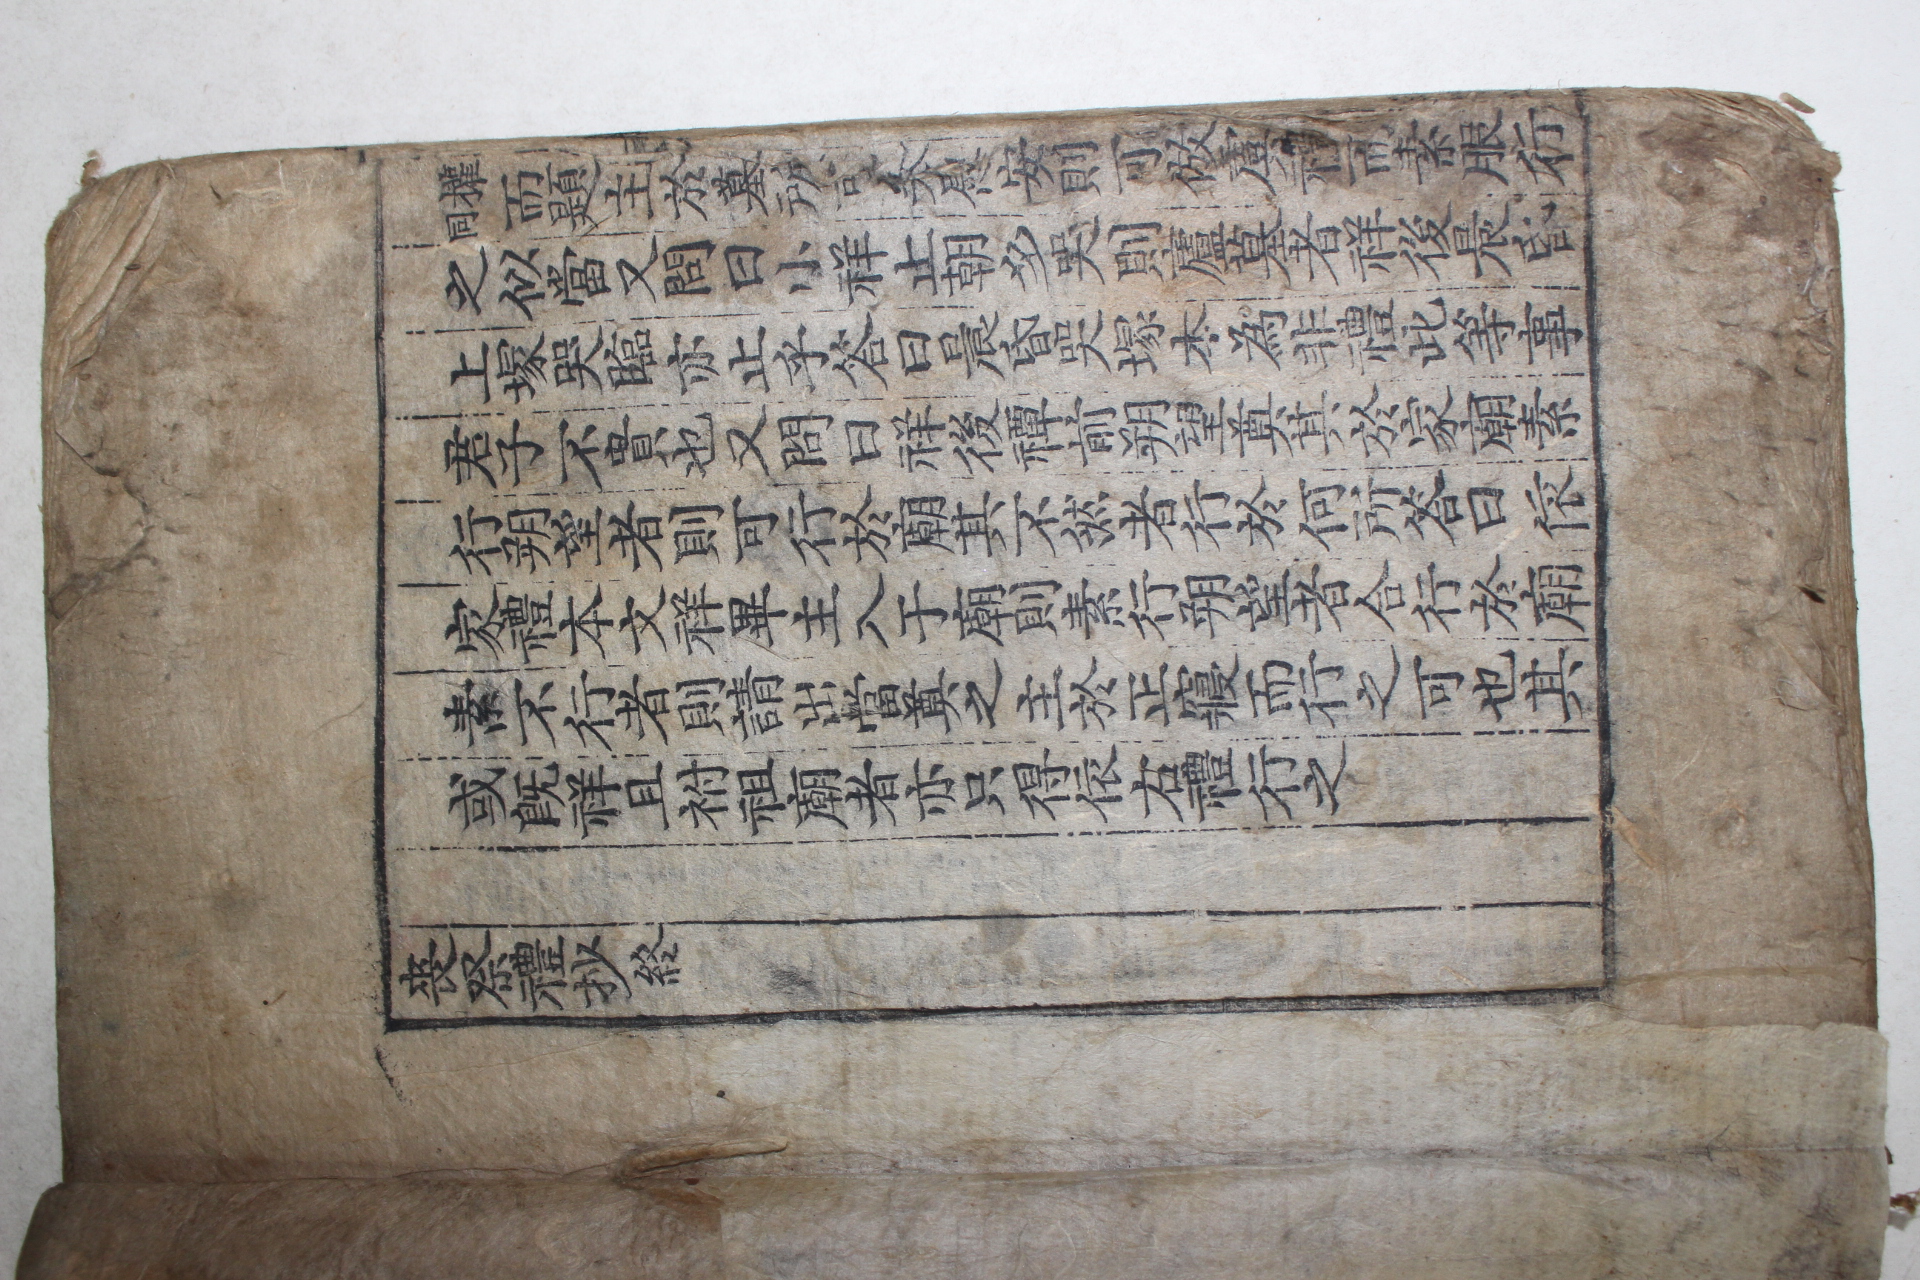 權同而題主於墓所亦安慰安則可倣虞禮而素服行
之似當又問曰小祥止朝夕哭則廬墓者祥後晨昏
上塚哭臨亦止乎答曰晨昏哭塚本為非禮此等事
君子不貴也又問曰祥後禫前朔望奠其於家廟素
行朔望者則可行於廟其不然者行於何所答曰依
家禮本文祥畢主入于廟則素行朔望者合行於廟
素不行者則請出當奠之主於正寢而行之可也其
或旣祥且祔祖廟者亦只得依右禮行之
喪祭禮抄終